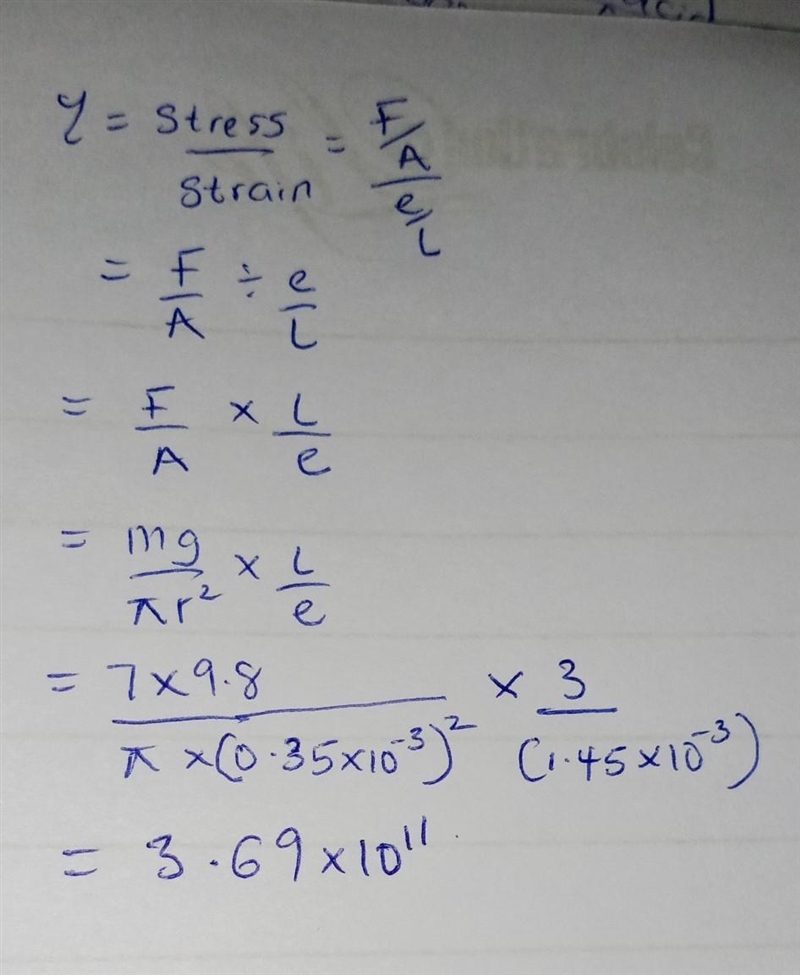 Y = Stress / Strain = F/A / e/L
= F/A ÷ e/L
= F/A × L/e
= mg/πr² × L/e
= 7×9.8 / π×(0.35×10⁻³)² × 3 / (1.45×10⁻³)
= 3.69×10¹¹